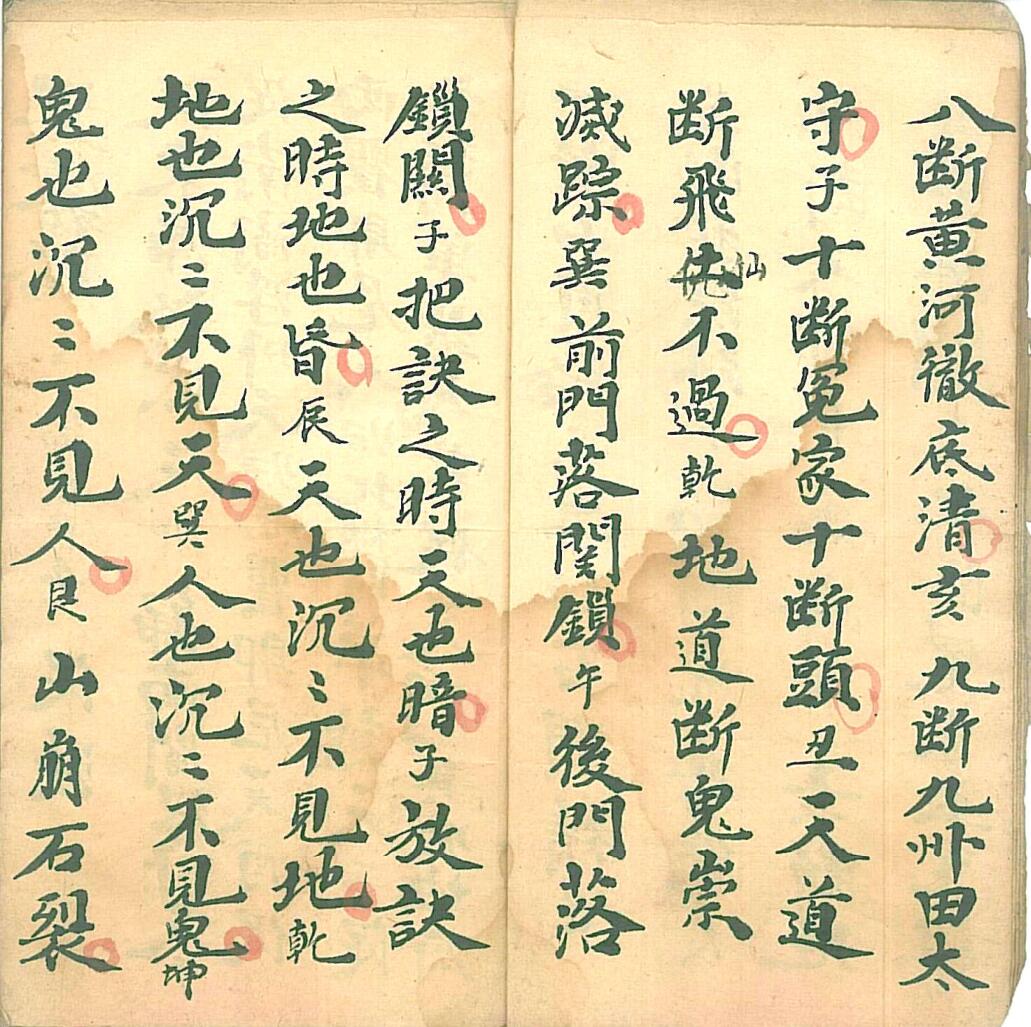 八断黄河徹底清亥九断九州田太
守子十断冤家十断頭丑天道
断飛仙不過乾地道断鬼祟
滅踪巽前門落関鎖午後門落
鎖關子把訣之時天也暗子放訣
之時地也昏辰天也沉〻不見地乾
地也沉〻不見天巽人也沉〻不見鬼坤
鬼也沉〻不見人艮山崩石裂